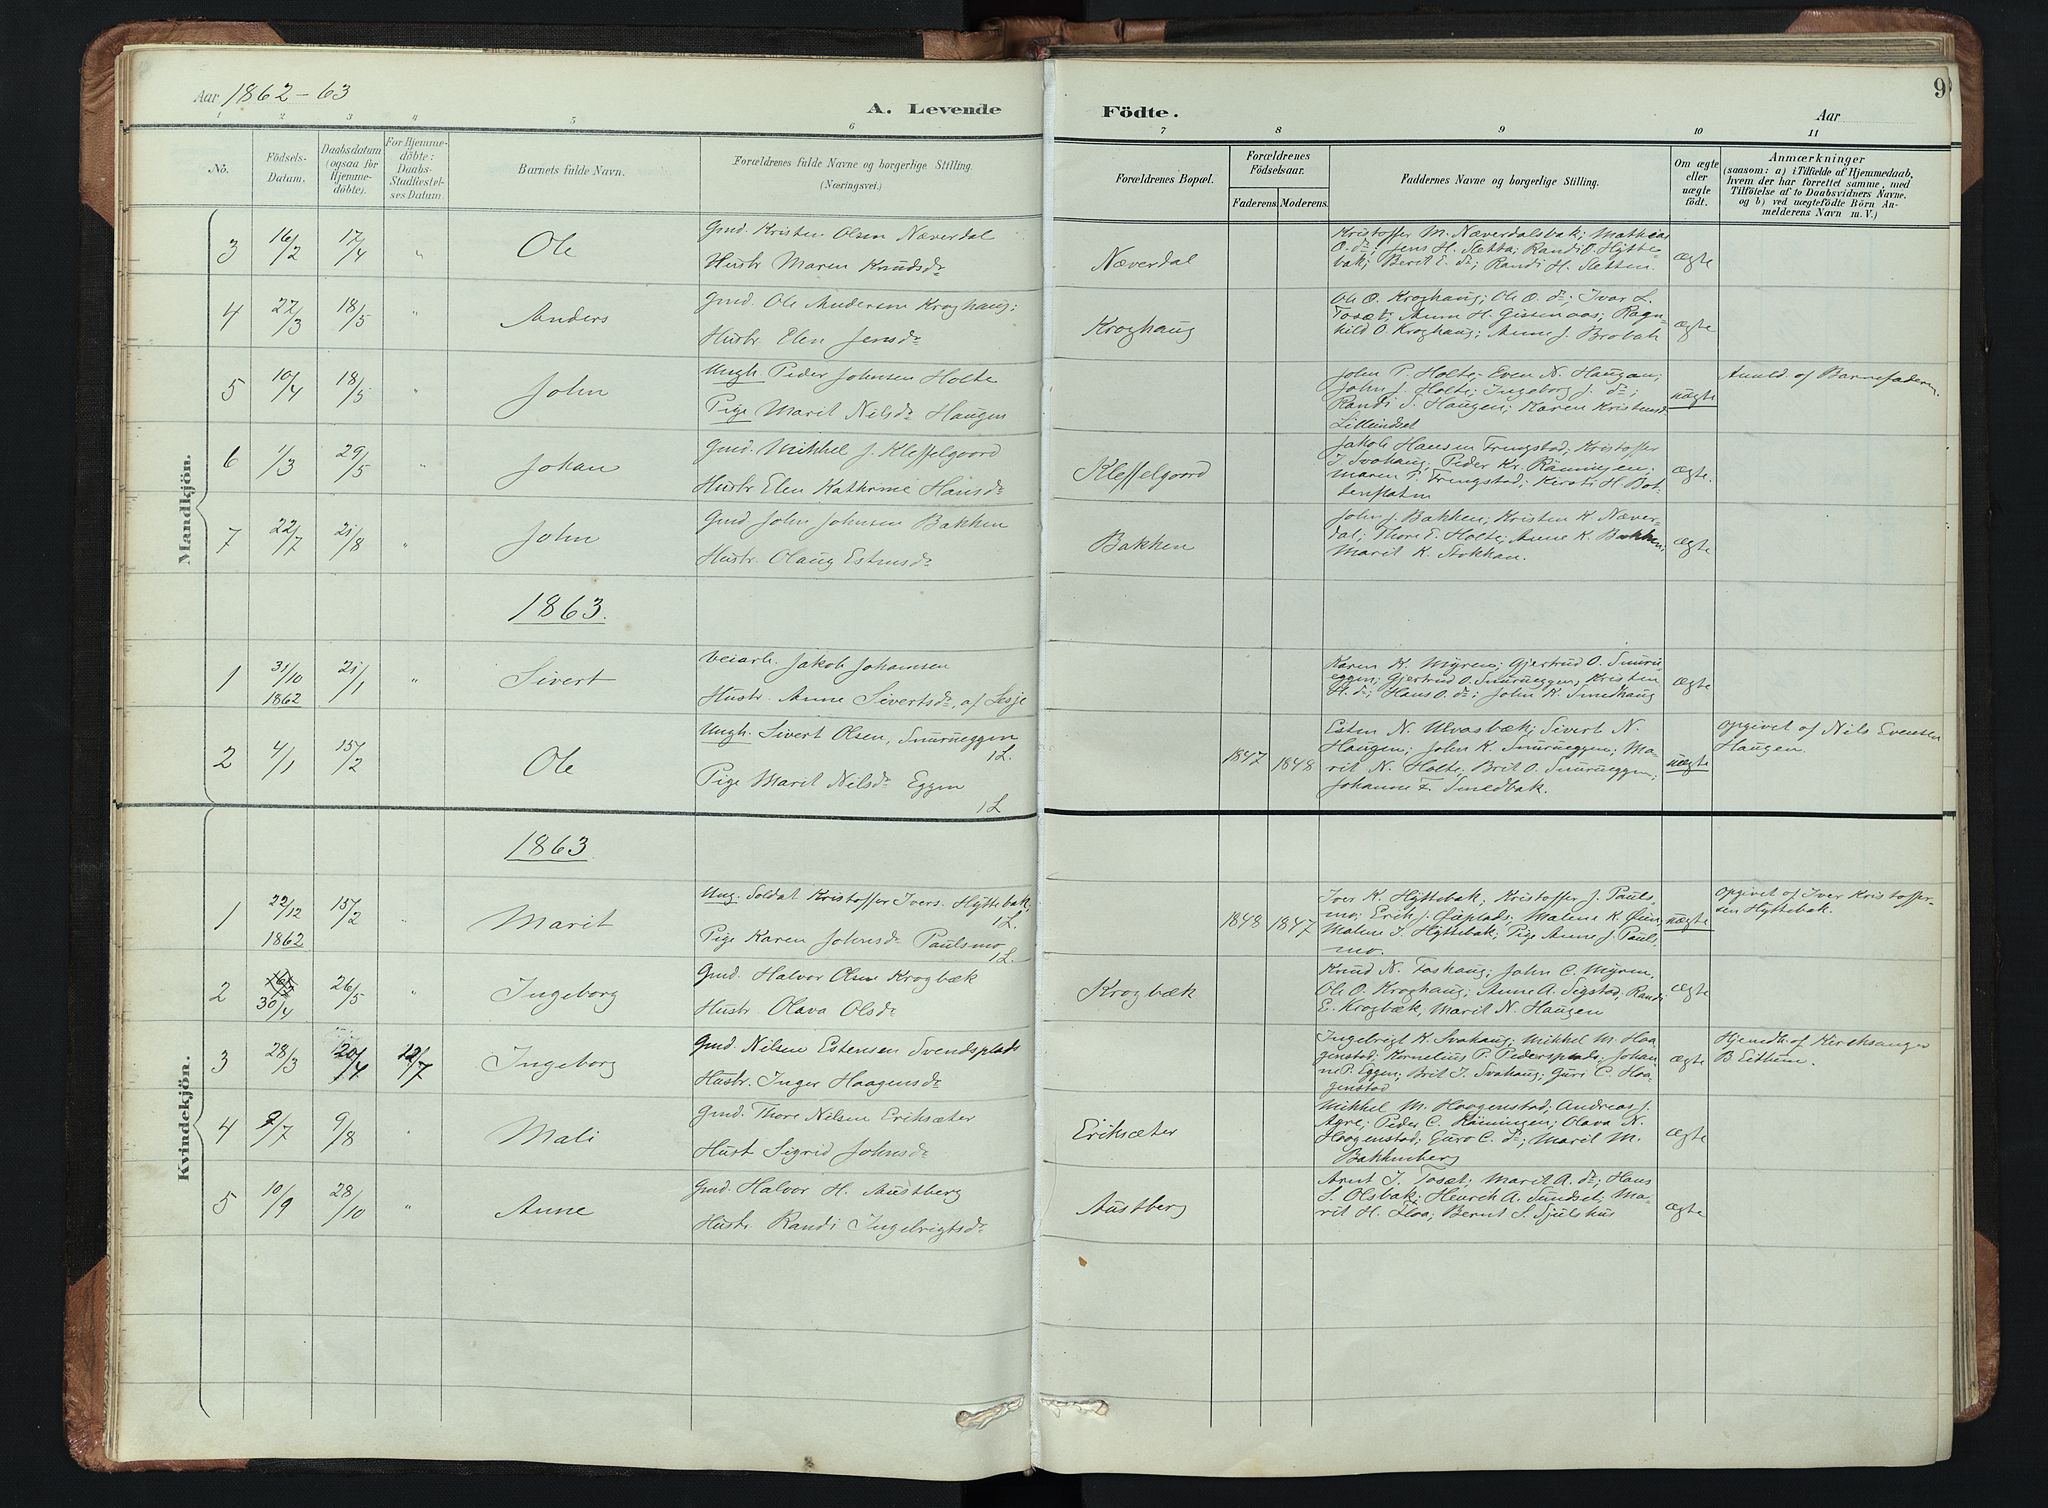 Aar 1862-63
A. Levende Födte.
Aar
9
1 2 3 4 5 6 7 8 9 10 11
No.
Födsels-
Datum.
Daabsdatum
(ogsaa for
Hjemme-
döbte).
For Hjemme-
döbte:
Daabs-
Stadfæstel-
ses Datum.
Barnets fulde Navn.
Forældrenes fulde Navne og borgerlige Stilling.
(Næringsvei.)
Forældrenes Bopæl.
Forældrenes
Födselsaar.
Faderens. Moderens.
Faddernes Navne og borgerlige Stilling.
Om ægte
eller
uægte
födt.
Anmærkninger
(saasom: a) i Tilfælde af Hjemmedaab,
hvem der har forrettet samme, med
Tilföielse af to Daabsvidners Navne,
og b) ved uægtefödte Börn An-
melderens Navn m. V.)
Mandkjön.
3 16/2 17/4 " Ole
Gmd. Kristen Olsen Næverdal
Hustr. Maren Knudsdr
Næverdal
Kristoffer M. Næverdalsbak; Mathias
O. do; Jens H. Sletta; Randi O. Hytte-
bak; Berit E. do; Randi H. Sletten.
ægte
4 22/3 18/5 " Anders
Gmd. Ole Andersen Kroghaug;
Hustr. Elen Jensdr
Kroghaug
Ole O. Kroghaug; Ole O. do; Ivar L.
Tosæt; Anne H. Gissinaas; Ragn-
hild O. Kroghaug; Anne J. Brobak
ægte
5 10/4 18/5 John
Ungk. Peder Johnsen Holte
Pige Marit Nilsdr Haugen
John P. Holte, Even N. Haugan;
John J. Holte; Ingeborg J. do;
Randi S. Haugen; Karen Kristensd
Lilleindset
uægte
Anmld. af Barnefaderen.
6 1/3 29/5 " Johan
Gmd. Mikkel J. Kleffelgaard
Hustr Elen Kathrine Hansdr
Kleffelgaard
Jakob Hansen Frengstad, Kristoffer
J. Svahaug; Peder Kr. Röningen;
Maren P. Frengstad; Kirsti H. Bot-
tenflaten
ægte.
7 22/7 21/8 " John
Gmd John Johnsen Bakken
Hustr. Olaug Estensdr
Bakken
John J. Bakken; Kristen K. Næver-
dal; Thore E. Holte; Anne K. Bakken;
Marit K. Stokkan.
ægte
1863.
1 31/10 1862 21/1 " Sivert
Veiarb. Jakob Johansen
Hustr. Anne Sivertsdr, af Lesje
Karen K. Myren; Gjertrud O. Snuru-
eggen; Gjertrud O. Snurueggen; Kristen
H. do; Hans O. do; John K. Smedhaug
ægte
2 4/1 15/2 Ole
Ungk. Sivert Olsen, Snurueggen
1 L.
Pige Marit Nilsdr Eggen
1 L
1847 1848
Esten N. Ulvasbæk; Sivert N.
Haugen; John K. Snurueggen; Ma-
rit N. Holte; Brit O. Snurueggen;
Johanne E. Smedbak.
uægte
Opgivet af Nils Evensen
Haugen.
Kvindekjön.
1863.
1 22/12 1862 15/2 " Marit
Ung. Soldat Kristoffer Ivers. Hyttebak,
1 L.
Pige Karen Johnsdr Paulsmo
1 L.
1848 1847
Iver K. Hyttebak, Kristoffer J. Pauls-
mo; Erik J. Öieplads; Malene K. Öien
Malene I. Hyttebak; Pige Anne J. Pauls-
mo.
uægte
Opgivet af Iver Kristoffer-
sen Hyttebak.
2 30/4 26/5 " Ingeborg
Gmd. Halvor Olsen Krogbæk
Hustr. Olava Olsdr
Krogbæk
Knud N. Foshaug; John C. Myren,
Ole O. Kroghaug; Anne A. Sigstad, Randi
E. Krogbæk, Marit N. Haugen
ægte
3 28/3 20/4 12/7 Ingeborg
Gmd. Nilsen Estensen Svendsplads
Hustr. Inger Haagensdr
Ingebrigt K. Svahaug; Mikkel M. Haa-
genstad; Kornelius P. Pedersplads; Johan-
ne P. Eggen; Brit I. Svahaug; Guri C. Haa-
genstad
ægte
Hjemdb. af Kirkesanger
B. Eithun.
4 2/7 9/8 " Mali
Gmd. Thore Nilsen Eriksæter
Hust Sigrid Johnsdr
Eriksæter
Mikkel M. Haagenstad; Andreas J.
Agre; Peder C. Röningen; Olava K.
Haagenstad; Guro C. do; Marit M.
Bakkenberg
ægte
5 10/9 28/10 " Anne
Gmd. Halvor H. Austberg
Hustr. Randi Ingebrigtsdr
Austberg
Arnt I. Tosæt; Marit A. do; Hans
S. Olsbak; Henrik A. Sundset; Ma-
rit H. Floa; Bernt S. Sjulshus
ægte